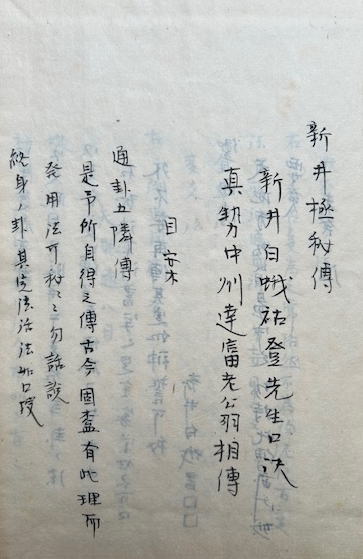 新井極秘傳
新井白蛾祐登先生口訣
真勢中州達富老翁相傳
目录
通卦五隣傳
是予所自得之傳古今固有此理而
発用法可秘々々勿話説
終身ノ卦其定法活法如口授